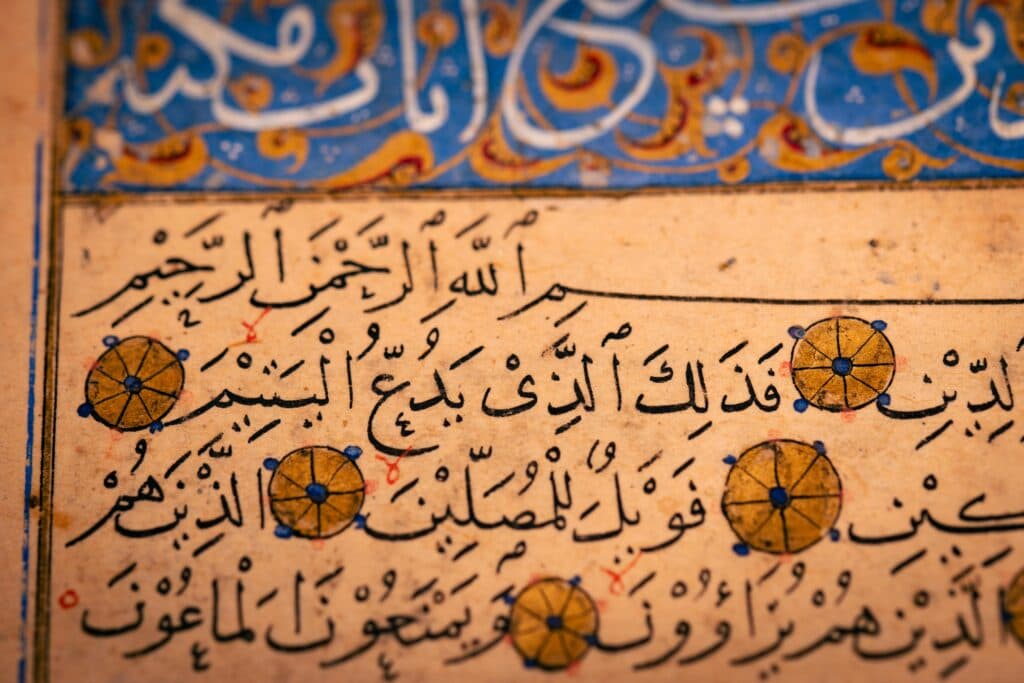 ايات مكية
بسم ٱللَّهِ ٱلرَّحْمَنِ ٱلرَّحِيْمِ
لدِّيْنِ فَذَلِكَ ٱلَّذِىْ يَدُعُّ الْيَتِيْمَ
كِيْنِ فَوَيْلٌ لِلْمُصَلِّيْنَ الَّذِيْنَ هُمْ
الَّذِيْنَ هُمْ يُرَاؤُوْنَ وَيَمْنَعُوْنَ الْمَاعُوْنَ